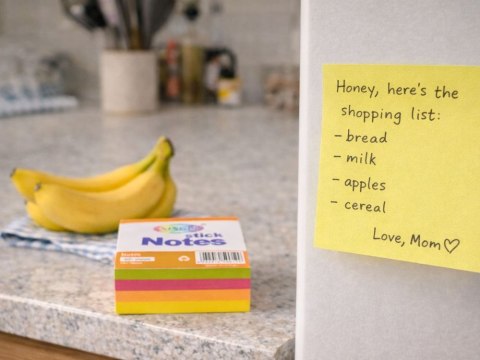 stick
Notes
Honey, here's the
shopping list:
- bread
- milk
- apples
- cereal
Love, Mom♡